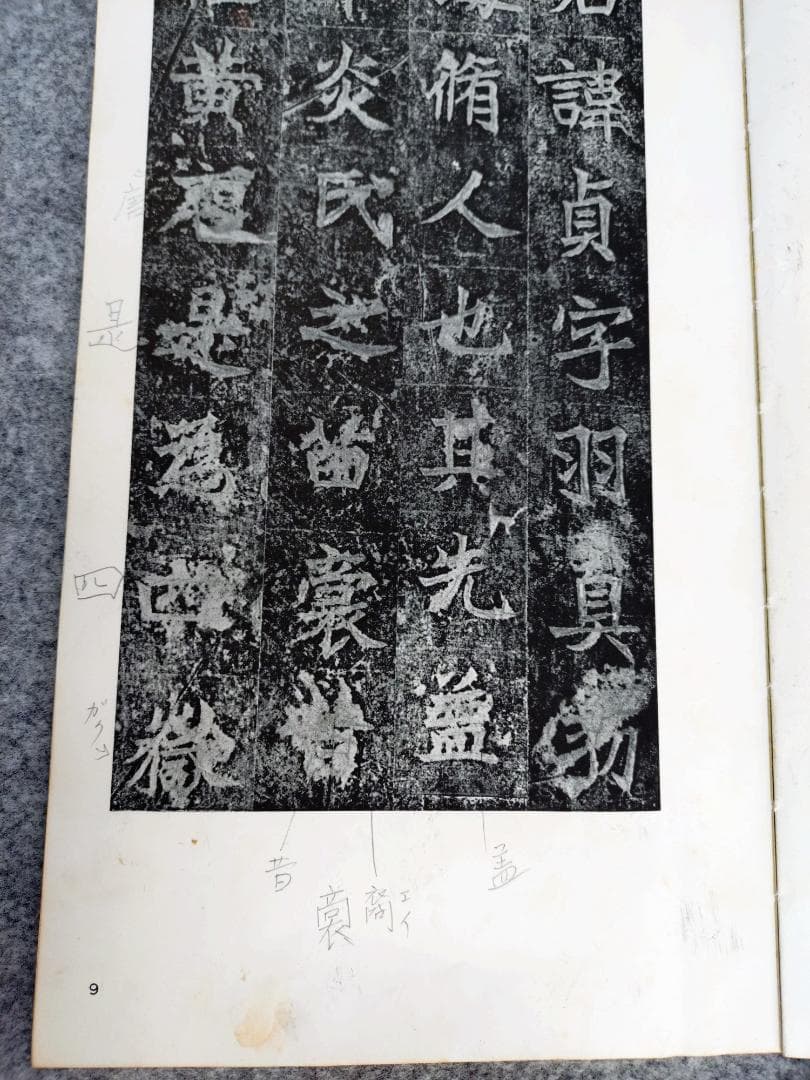 諱貞字羽真勃
脩人也其先盖
炎氏之苗裔昔
黄虞是為四嶽
是
四
ガク
盖
裔
エイ
昔
9